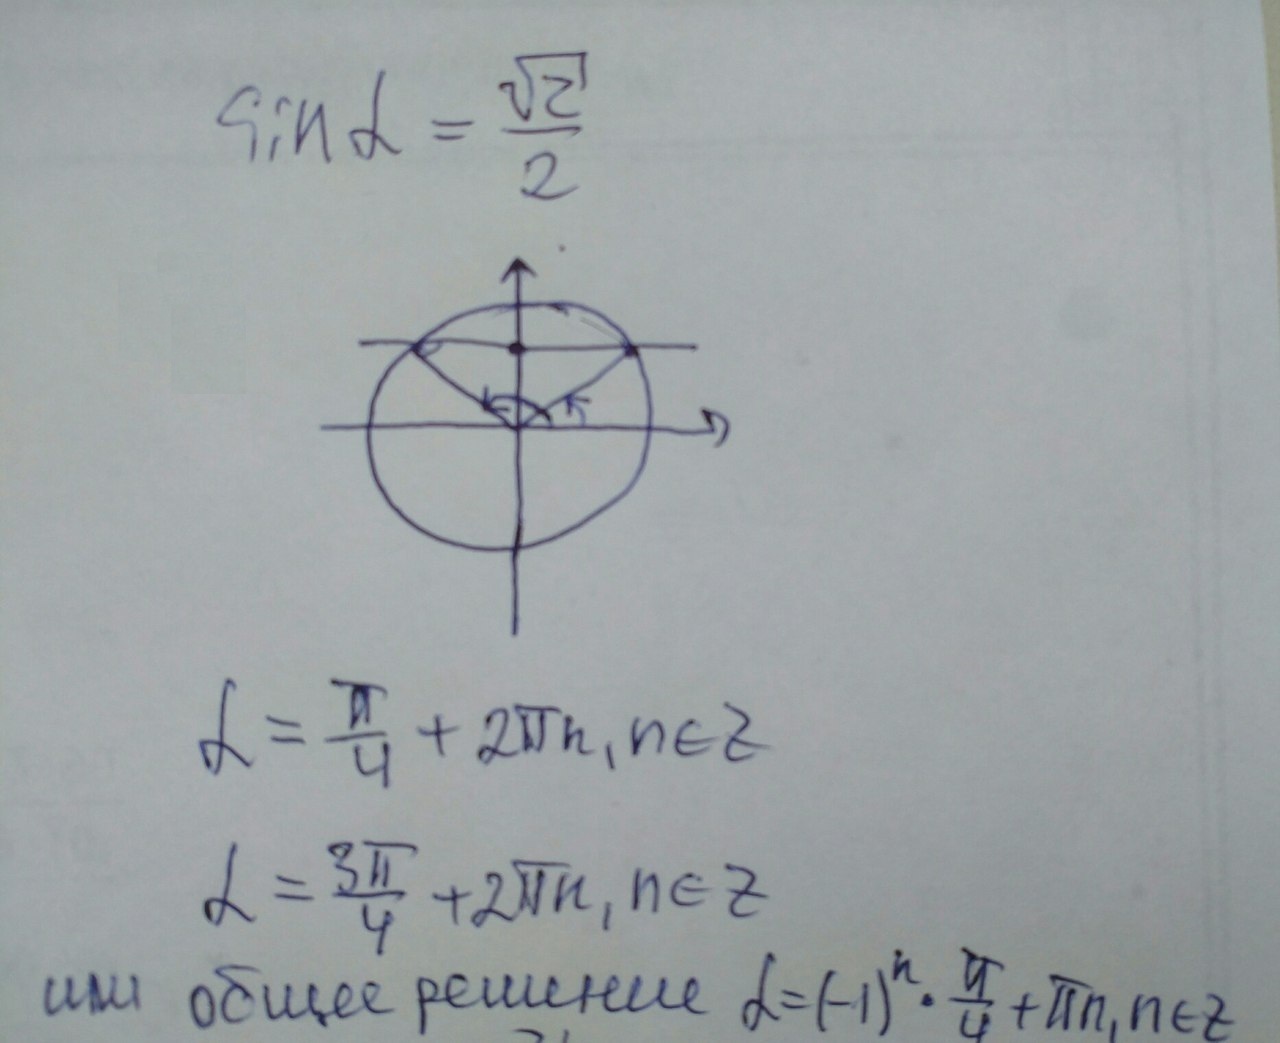 sin α = √2/2
α = π/4 + 2πn, n ∈ Z
α = 3π/4 + 2πn, n ∈ Z
или общее решение α = (-1)ⁿ · π/4 + πn, n ∈ Z